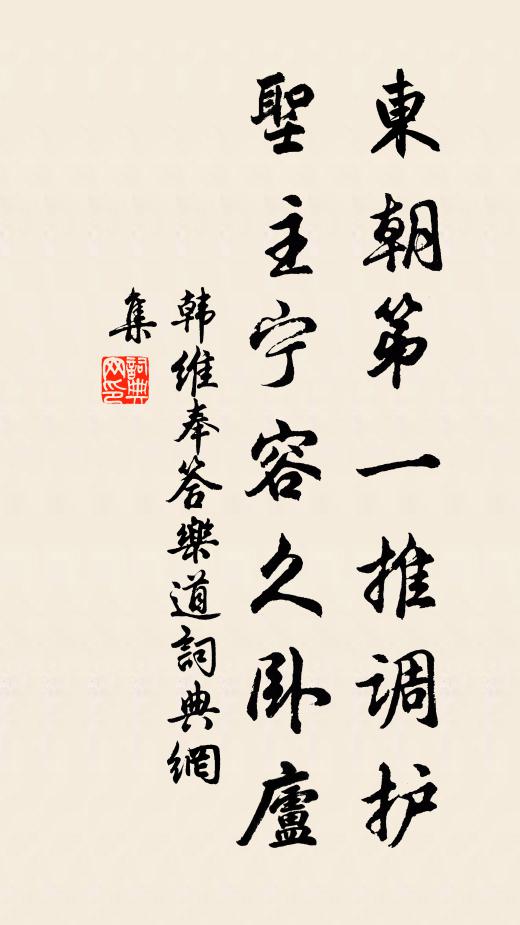 東朝第一推调护
聖主宁容久卧廬
韩维奉答樂道詞典網
集
詞典
网印